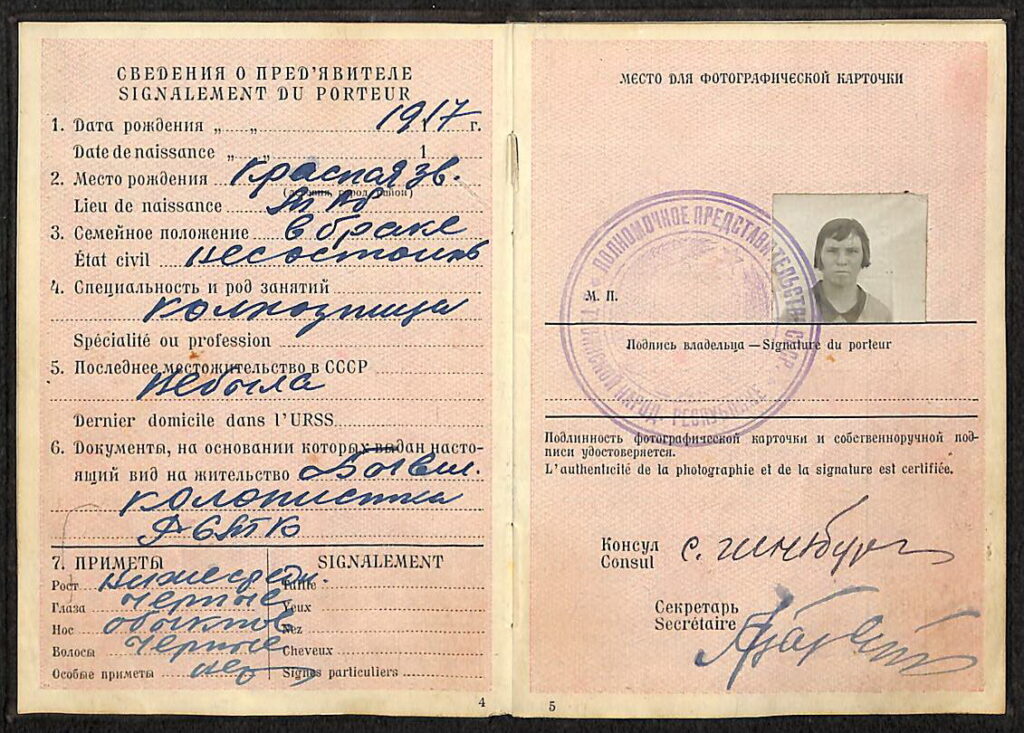 СВЕДЕНИЯ О ПРЕД'ЯВИТЕЛЕ
SIGNALEMENT DU PORTEUR
1. Дата рождения „ „ 1917 г.
Date de naissance „ „ 1
2. Место рождения Красная зв.
Lieu de naissance ТНР
3. Семейное положение в браке
État civil не состоит
4. Специальность и род занятий
колхозница
Spécialité ou profession
5. Последнее местожительство в СССР
не была
Dernier domicile dans l'URSS
6. Документы, на основании которых выдан насто-
ящий вид на жительство Бывш.
колонистка
7. ПРИМЕТЫ SIGNALEMENT
Рост ниже средн. Taille
Глаза черные Yeux
Нос обыкнов. Nez
Волосы черные Cheveux
Особые приметы нет Signes particuliers
4
МЕСТО ДЛЯ ФОТОГРАФИЧЕСКОЙ КАРТОЧКИ
ПОЛНОМОЧНОЕ ПРЕДСТАВИТЕЛЬСТВО СССР.
НАРОД. РЕСПУБЛИКЕ
М. П.
Подпись владельца — Signature du porteur
Подлинность фотографической карточки и собственноручной под-
писи удостоверяется.
L'authenticité de la photographie et de la signature est certifiée.
Консул с. гинбург
Consul
Секретарь
Secrétaire
5